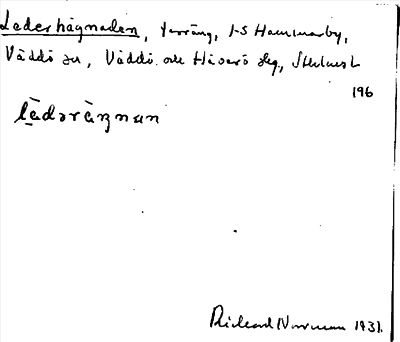 Lederhägnaden, terräng, 1-5 Hammarby,
Väddö sn, Väddö och Häverö skg, Sthlms l.
196
lèdəràŋnan
Rickard Norrman 1931.